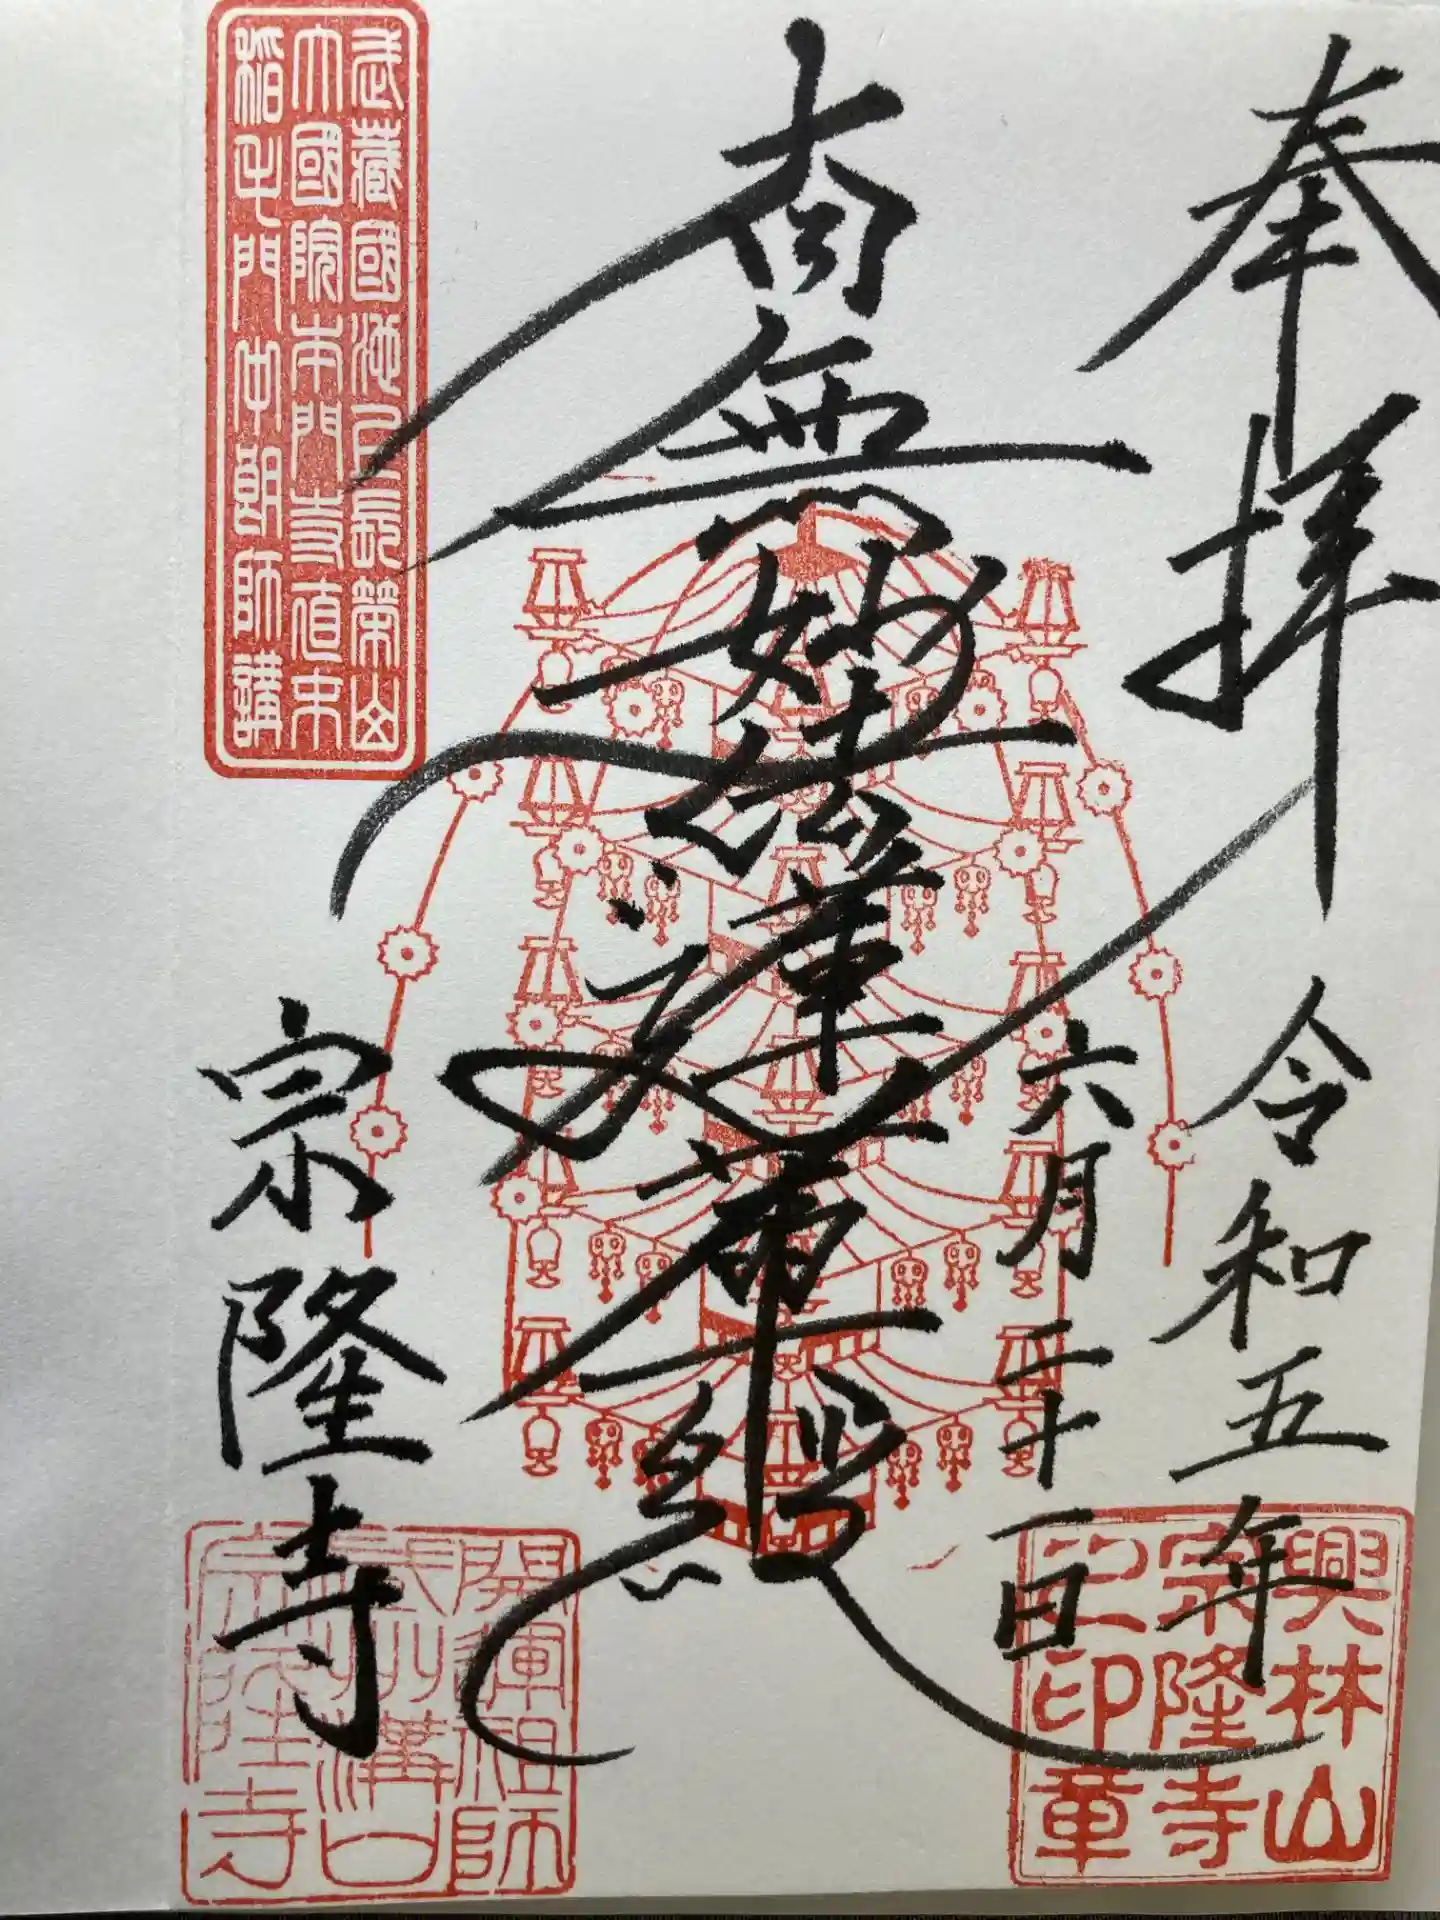 奉拝
令和五年
六月二十一日
南無妙法蓮華経
宗隆寺
武藏國池上長榮山
大國院本門寺直末
稻毛門中朗師講
興林山
宗隆寺
之印章
開運祖師
武州溝口
宗隆寺